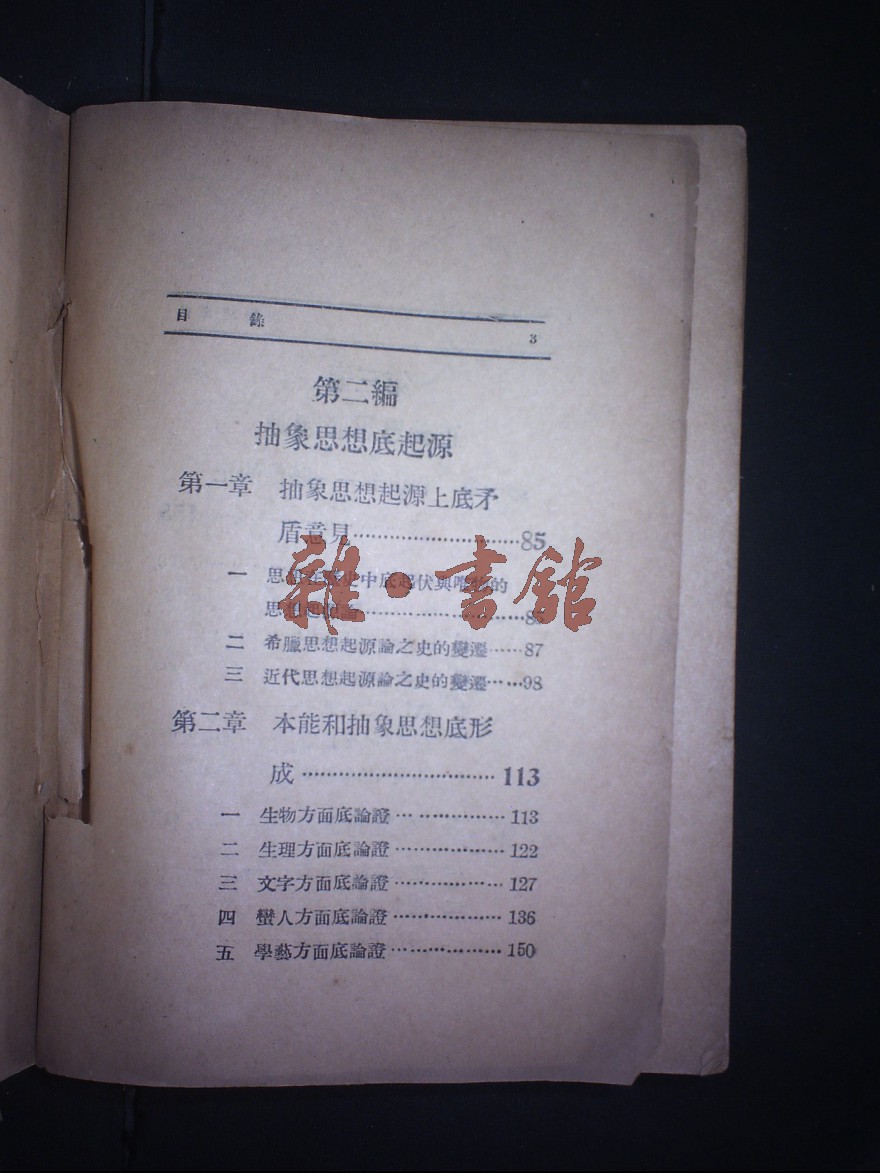 目 錄 3
第二編
抽象思想底起源
第一章 抽象思想起源上底矛
盾意見……………………85
一 思想在歷史中底起伏與唯物的
思想起源論……………………85
二 希臘思想起源論之史的變遷……87
三 近代思想起源論之史的變遷……98
第二章 本能和抽象思想底形
成……………………113
一 生物方面底論證……………113
二 生理方面底論證……………122
三 文字方面底論證……………127
四 蠻人方面底論證……………136
五 學藝方面底論證……………150
雜·書館